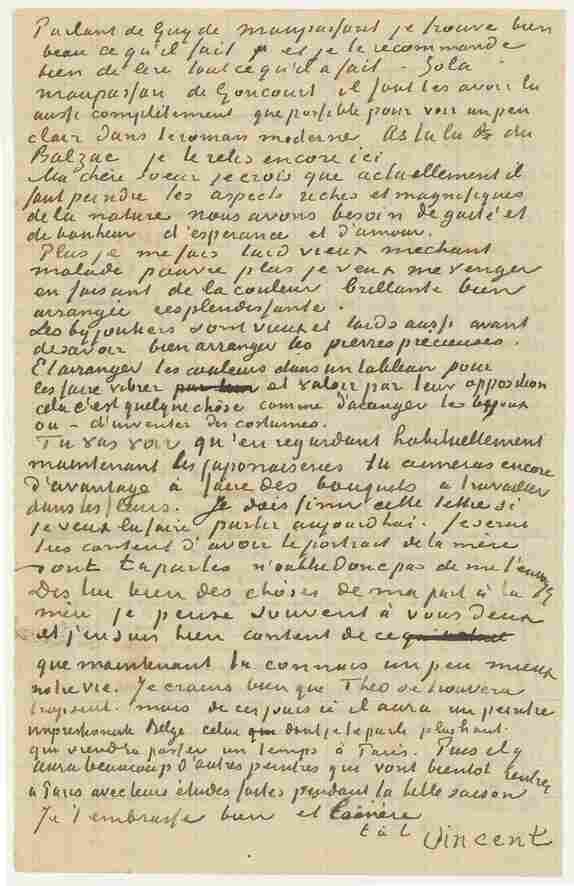 Parlant de Guy de Maupassant je trouve bien
beau ce qu'il fait et je te recommande
bien de lire tout ce qu'il a fait – Zola
Maupassan de Goncourt il faut les avoir lu
aussi complètement que possible pour voir un peu
clair dans le roman moderne. As tu lu du
Balzac je le relis encore ici
Ma chère soeur je crois que actuellement il
faut peindre les aspects riches et magnifiques
de la nature nous avons besoin de gaité et
de bonheur d'espérance et d'amour.
Plus je me fais laid vieux méchant
malade pauvre plus je veux me venger
en faisant de la couleur brillante bien
arrangée resplendissante.
Les byjoutiers sont vieux et laids aussi avant
de savoir bien arranger les pierres précieuses.
Et arranger les couleurs dans un tableau pour
les faire vibrer et valoir par leur opposition
cela c'est quelque chôse comme d'arranger les byoux
ou – d'inventer des costumes.
Tu vas voir qu'en regardant habituellement
maintenant les japonaiseries tu aimeras encore
d'avantage à faire des bouquets a travailler
dans les fleurs. Je dois finir cette lettre si
je veux la faire partir aujourdhui. Je serai
tres content d'avoir le portrait de la mère
dont tu parles n'oublie donc pas de me l'envoyer
Dis lui bien des chôses de ma part à la
mère je pense souvent à vous deux
et j'en suis bien content de ce
que maintenant tu connais un peu mieux
notre vie. Je crains bien que Theo se trouvera
trop seul. mais de ces jours ici il aura un peintre
impressioniste Belge celui dont je te parle plus haut.
qui viendra passer un temps à Paris. Puis il y
aura beaucoup d'autres peintres qui vont bientot rentrer
a Paris avec leurs études faites pendant la belle saison
Je t'embrasse bien et la mère
t à t Vincent